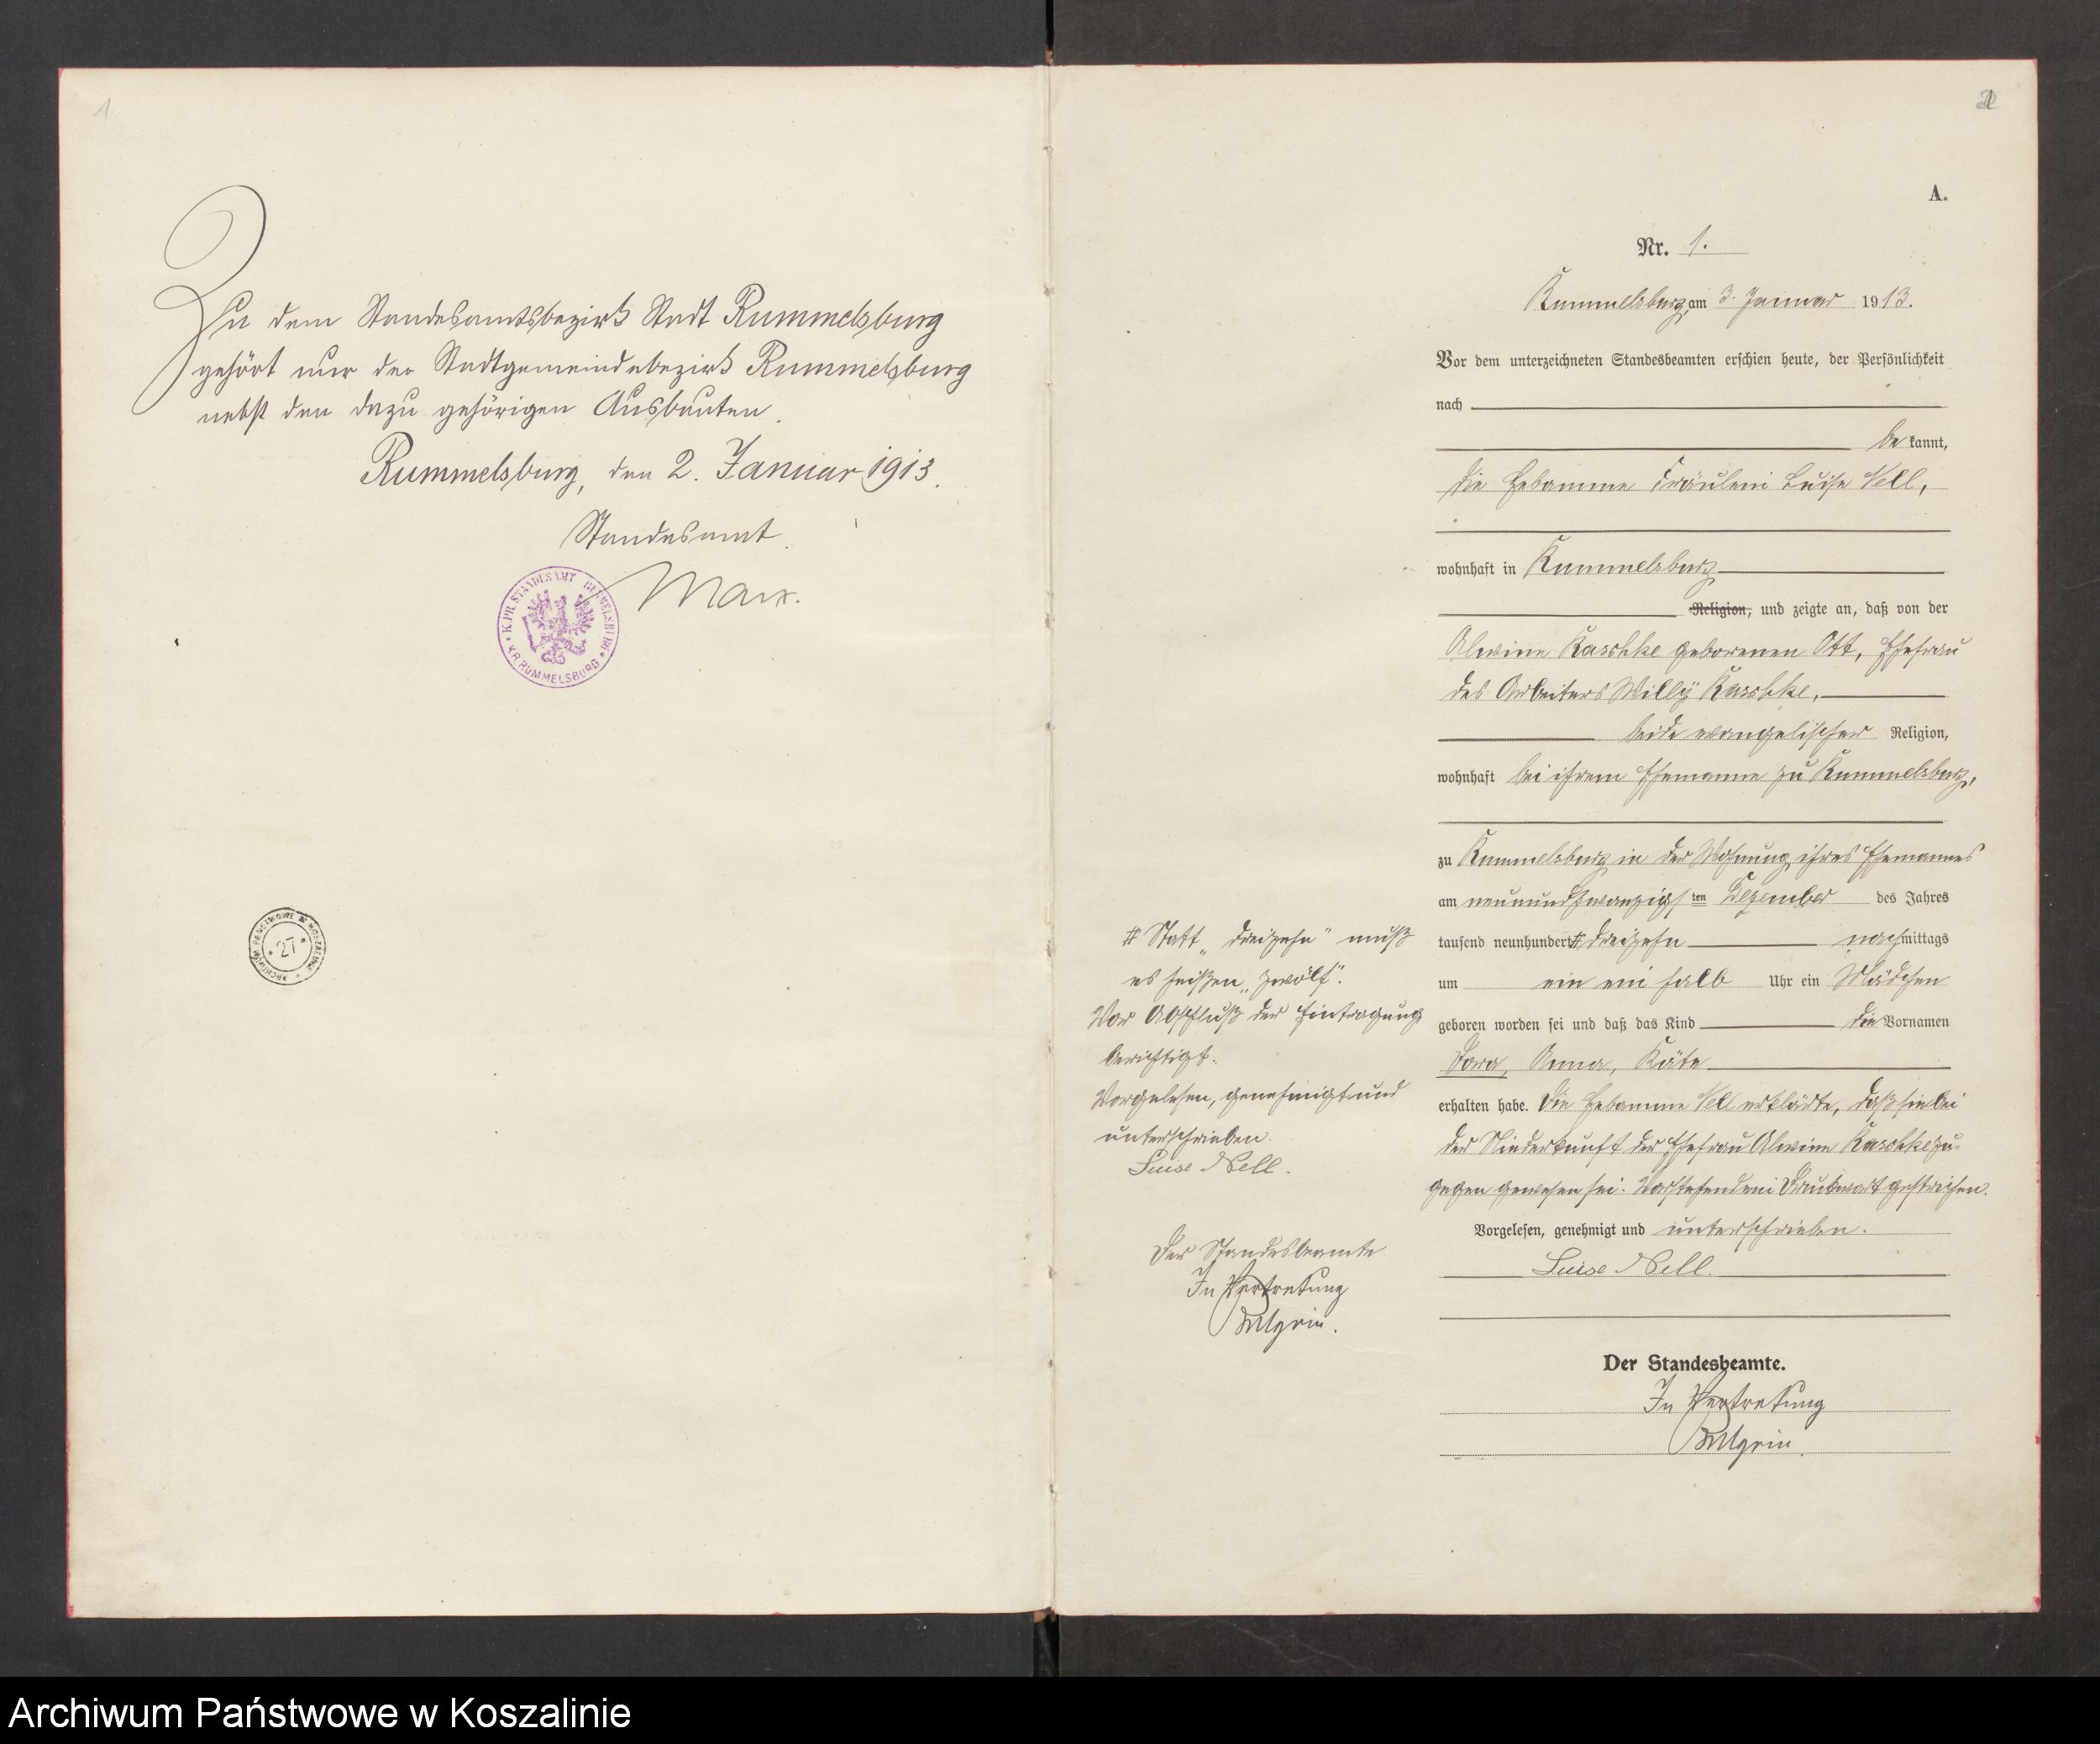 1
Zu dem Standesamtsbezirk Stadt Rummelsburg
gehört nur der Stadtgemeindebezirk Rummelsburg
nebst den dazu gehörigen Ausbauten.
Rummelsburg, den 2. Januar 1913.
Standesamt.
Marx.
K. PR. STANDESAMT RUMMELSBURG
KR. RUMMELSBURG
ARCHIWUM PAŃSTWOWE W KOSZALINIE
27
2
A.
Nr. 1.
Rummelsburg, am 3. Januar 1913.
Vor dem unterzeichneten Standesbeamten erschien heute, der Persönlichkeit
nach
be kannt,
die Hebamme Fräulein Luise Nell,
wohnhaft in Rummelsburg
Religion, und zeigte an, daß von der
Alwine Raschke geborenen Ott, Ehefrau
des Arbeiters Willy Raschke,
beide evangelischer Religion,
wohnhaft bei ihrem Ehemanne zu Rummelsburg,
zu Rummelsburg in der Wohnung ihres Ehemannes
am neunundzwanzigsten Dezember des Jahres
tausend neunhundert # dreizehn nachmittags
um ein ein halb Uhr ein Mädchen
geboren worden sei und daß das Kind die Vornamen
Dora, Anna, Käte
erhalten habe. Die Hebamme Nell erklärte, daß sie bei
der Niederkunft der Ehefrau Alwine Raschke zu-
gegen gewesen sei. Vorstehend ein Druckwort gestrichen.
Vorgelesen, genehmigt und unterschrieben.
Luise Nell.
Der Standesbeamte.
In Vertretung
# Statt „dreizehn" muß
es heißen „zwölf".
Vor Abschluß der Eintragung
berichtigt.
Vorgelesen, genehmigt und
unterschrieben.
Luise Nell.
Der Standesbeamte
In Vertretung
Archiwum Państwowe w Koszalinie